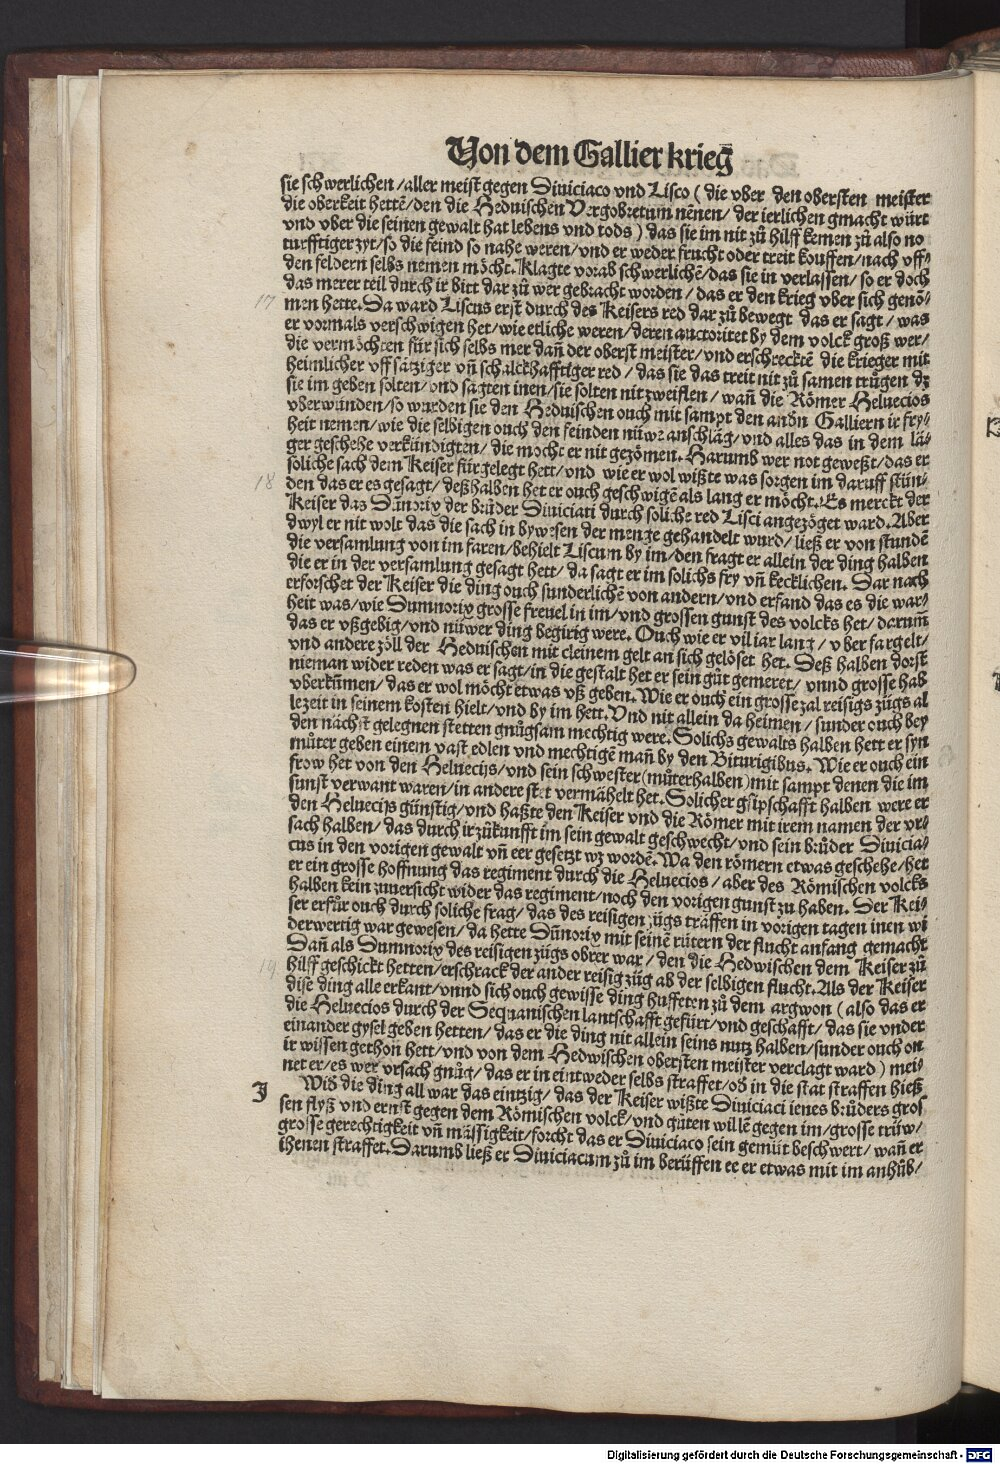 Von dem Gallier krieg
sie schwerlichen/aller meist gegen Diuiciaco vnd Lisco (die vber den obersten meister
die oberkeit hettē/den die Heduischen Vergobretum nēnen/der ierlichen gmacht würt
vnd vber die seinen gewalt hat lebens vnd tods) das sie im nit zů hilff kemen zů also no
turfftiger zyt/so die feind so nahe weren/vnd er weder frucht oder treit kouffen/nach vff/
den feldern selbs nemen möcht. Klagte vorab schwerlichē/das sie in verlassen/so er doch
das merer teil durch ir bitt dar zů wer gebracht worden/das er den krieg vber sich genō/
17 men hette. Da ward Liscus erst durch des Keisers red dar zů bewegt das er sagt/was
er vormals verschwigen het/wie etliche weren/deren auctoritet by dem volck groß wer/
die vermöchten für sich selbs mer dañ der oberst meister/vnd erschrecktē die krieger mit
heimlicher vff sätziger vñ schalckhafftiger red/das sie das treit nit zů samen trůgen dz
sie im geben solten/vnd sagten inen/sie solten nit zweiflen/wañ die Römer Heluecios
vberwunden/so wurden sie den Heduischen ouch mit sampt den andn Galliern ir fry/
heit nemen/wie die selbigen ouch den feinden nüwe anschläg/vnd alles das in dem lä/
ger geschehe verkündigten/die mocht er nit gezömen. Harumb wer not geweßt/das er
soliche sach dem Keiser fürgelegt hett/vnd wie er wol wißte was sorgen im daruff stün/
18 den das er es gesagt/deßhalben het er ouch geschwigē als lang er möcht. Es merckt der
Keiser das Dūnorix der brůder Diuiciaci durch soliche red Lisci angezöget ward. Aber
dwyl er nit wolt das die sach in bywesen der menge gehandelt wurd/ließ er von stundē
die versamlung von im faren/behielt Liscum by im/den fragt er allein der ding halben
die er in der versamlung gesagt hett/da sagt er im solichs fry vñ kecklichen. Dar nach
erforschet der Keiser die ding ouch sunderlichē von andern/vnd erfand das es die war/
heit was/wie Dumnorix grosse freuel in im/vnd grossen gunst des volcks het/darum̄
das er vßgebig/vnd nüwer ding begirig were. Ouch wie er vil iar lang/vber fargelt/
vnd andere zöll der Heduischen mit cleinem gelt an sich gelöset het. Deß halben dorst
nieman wider reden was er sagt/in die gestalt het er sein gůt gemeret/vnnd grosse hab
vberkūmen/das er wol möcht etwas vß geben. Wie er ouch ein grosse zal reisigs zügs al
lezeit in seinem kosten hielt/vnd by im hett. Vnd nit allein da heimen/sunder ouch bey
den nächst gelegnen stetten gnůgsam mechtig were. Solichs gewalts halben hett er syn
můter geben einem vast edlen vnd mechtigē mañ by den Biturigibus. Wie er ouch ein
frow het von den Heluecijs/vnd sein schwester (můterhalben) mit sampt denen die im
sunst verwant waren/in andere stet vermähelt het. Solicher gsipschafft halben were er
den Heluecijs günstig/vnd haßte den Keiser vnd die Römer mit irem namen der vr/
sach halben/das durch ir zůkunfft im sein gewalt geschwecht/vnd sein brůder Diuicia/
cus in den vorigen gewalt vñ eer gesetzt wz wordē. Wa den römern etwas geschehe/het
er ein grosse hoffnung das regiment durch die Heluecios/aber des Römischen volcks
halben kein zuuersicht wider das regiment/noch den vorigen gunst zu haben. Der Kei/
ser erfůr ouch durch soliche frag/das des reisigen zügs träffen in vorigen tagen inen wi
derwertig war gewesen/da hette Dūnorix mit seinē rütern der flucht anfang gemacht
Dañ als Dumnorix des reisigen zügs obrer war/den die Hedwischen dem Keiser zů
19 hilff geschickt hetten/erschrack der ander reisig züg ab der selbigen flucht. Als der Keiser
dise ding alle erkant/vnnd sich ouch gewisse ding hufften zů dem argwon (also das er
die Heluecios durch der Sequanischen lantschafft gefürt/vnd geschafft/das sie vnder
einander gysel geben hetten/das er die ding nit allein seins nutz halben/sunder ouch on
ir wissen gethon hett/vnd von dem Hedwischen obersten meister verclagt ward) mei/
net er/es wer vrsach gnůg/das er in eintweder selbs straffet/od in die stat straffen hieß
J Wid die ding all war das eintzig/das der Keiser wißte Diuiciaci ienes brůders gros
sen flyß vnd ernst gegen dem Römischen volck/vnd gůten willē gegen im/grosse trüw/
grosse gerechtigkeit vñ mässigkeit/forcht das er Diuiciaco sein gemüt beschwert/wañ er
ihenen straffet. Darumb ließ er Diuiciacum zů im berüffen ee er etwas mit im anhůb/
Digitalisierung gefördert durch die Deutsche Forschungsgemeinschaft - DFG